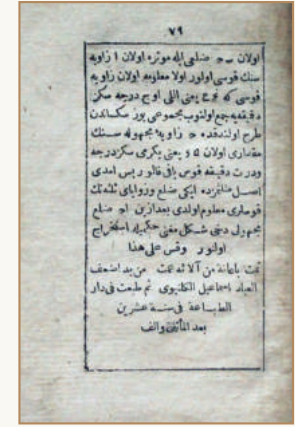 ٧٩
اولان ب ج ضلعى ايله موتره اولان ا زاويه
سنك قوسى اولور اولا معلومه اولان زاويه
قوسى كه يعنى اللى اوج درجه سكز
دقيقه يه جمع اولنوب مجموعى يوز سكساندن
طرح اولندقده ج زاويهٔ مجهوله سنك
مقدارى اولان يعنى يكرمى سكز درجه
ودرت دقيقه قوس باقى قالور پس امدى
اصل ايكى ضلع وزواياى ثلثه نك
قوسلرى معلوم اولدى بعدازين ا ج ضلع
مجهولى دخى شكل مغنى حكميله استخراج
اولنور وقس على هذا
تمت من آلائه تمت من يد اضعف
العباد اسماعيل الكلنبوى ثم طبعت فى دار
الطباعة فى سنة عشرين
بعد المأتين والف